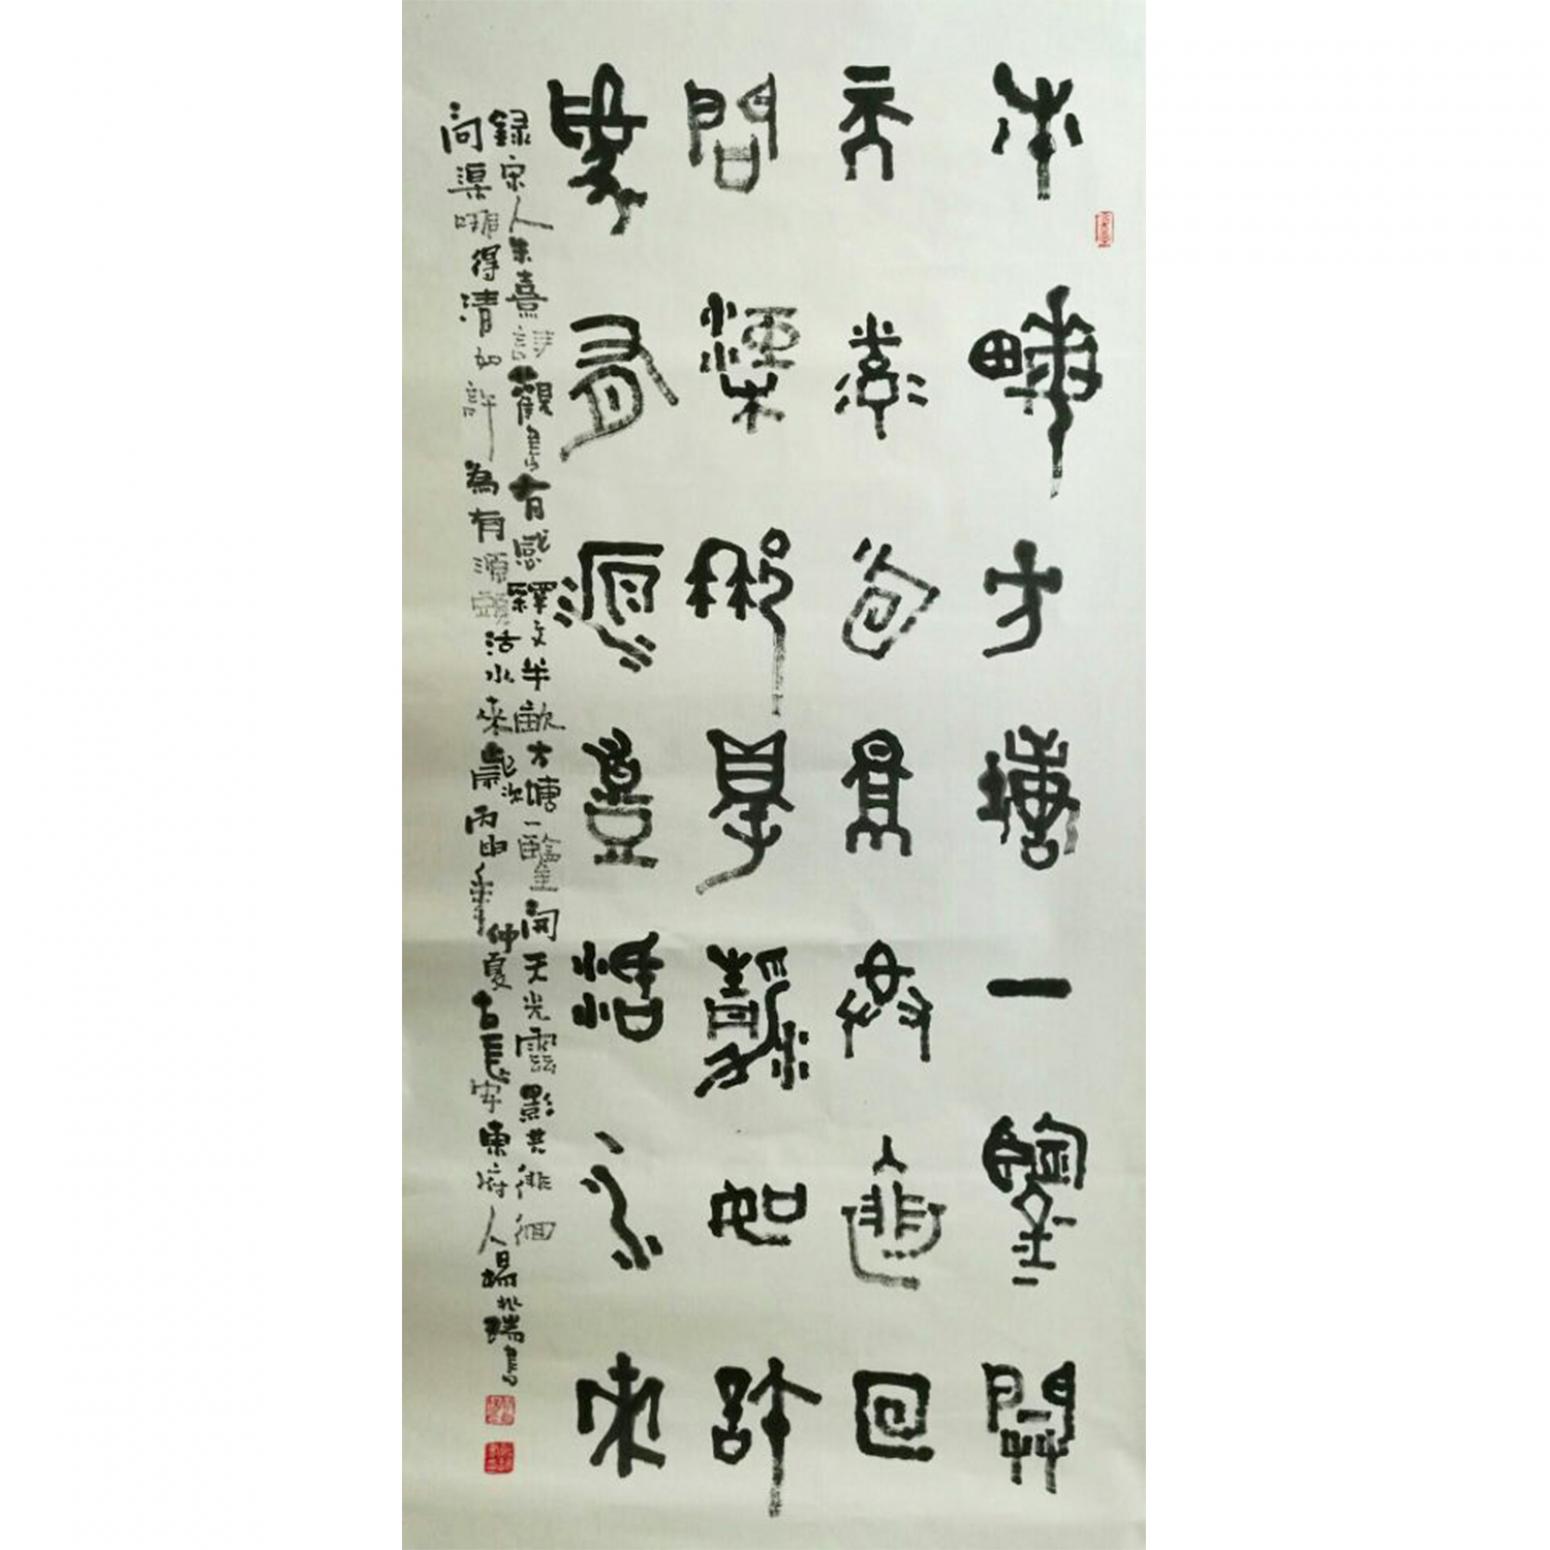 半畝方塘一鑑開
天光云景共徘回
問渠那得清如許
為有源頭活水來
録宋人朱熹詩觀書有感釋文半畝方塘一鑑開天光雲影共徘徊
問渠哪得清如許為有源頭活水來歲次丙申年仲夏古長安東府人楊兆瑞書